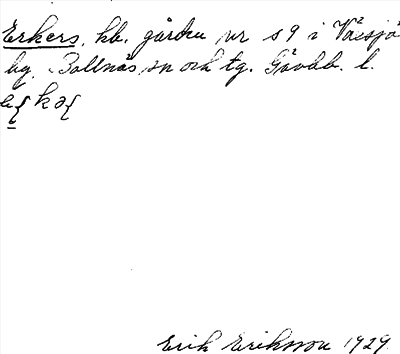 Erkers, hb. gården nr s 9 i Växsjö
by, Bollnäs sn och tg. Gävleb. l.
Erik Eriksson 1929.